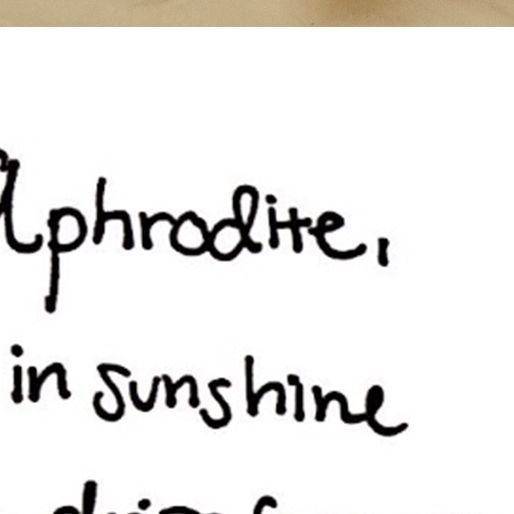 Aphrodite,
in sunshine